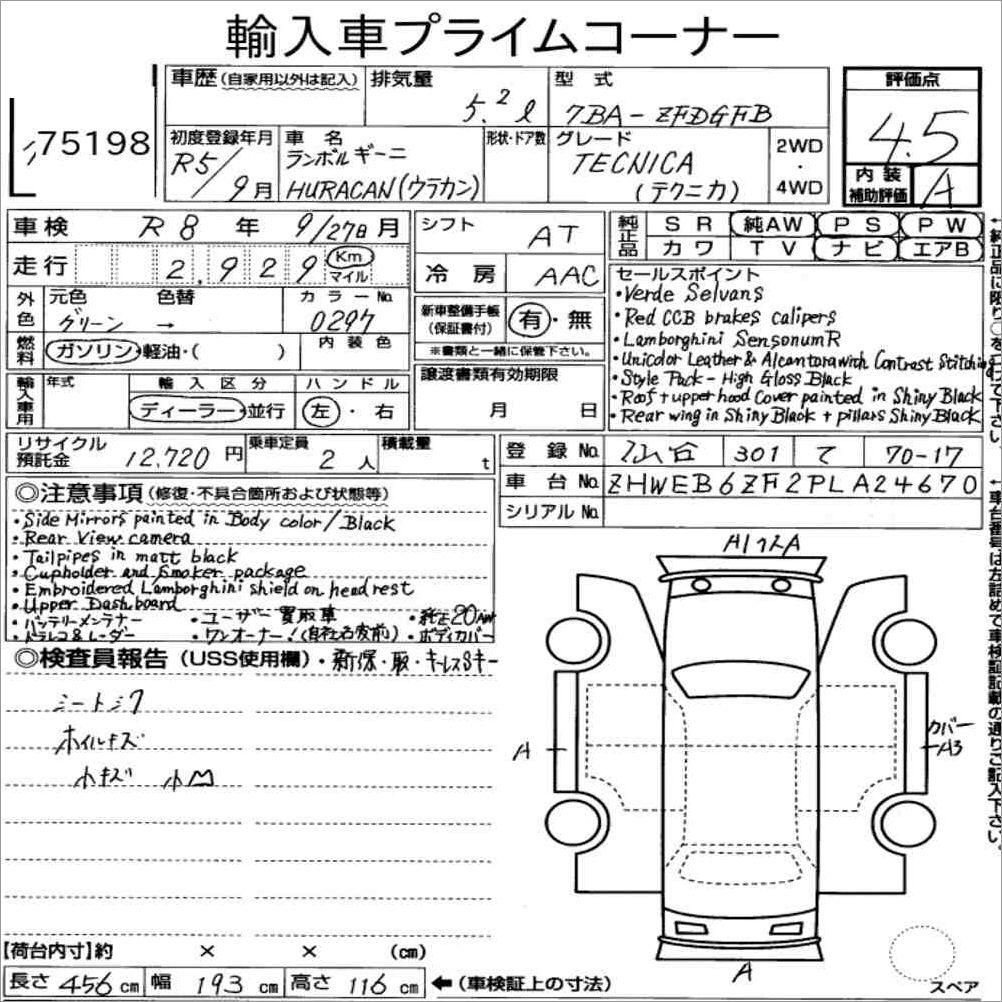 輸入車プライムコーナー
75198
車歴(自家用以外は記入)
排気量 5.2ℓ
型式 7BA-ZFDGFB
評価点 4.5
初度登録年月 R5/9月
車名 ランボルギーニ HURACAN(ウラカン)
形状・ドア数
グレード TECNICA (テクニカ)
2WD・4WD
内装補助評価 A
車検 R8年 9/27日月
シフト AT
純正品 SR 純AW PS PW
カワ TV ナビ エアB
走行 2,929 Km マイル
冷房 AAC
外色 元色 グリーン 色替 → カラーNo. 0297
新車整備手帳(保証書付) 有・無
※書類と一緒に保管下さい。
燃料 ガソリン・軽油・( ) 内装色
輸入車用 年式 輸入区分 ディーラー・並行 ハンドル 左・右
譲渡書類有効期限 月 日
セールスポイント
・Verde Selvans
・Red CCB brakes calipers
・Lamborghini Sensonum R
・Unicolor Leather & Alcantara with Contrast Stitching
・Style Pack - High Gloss Black
・Roof + upper hood Cover painted in Shiny Black
・Rear wing in Shiny Black + pillars Shiny Black
リサイクル預託金 12,720円
乗車定員 2人
積載量 t
登録No. 301 て 70-17
車台No. ZHWEB6ZF2PLA24670
シリアルNo.
◎注意事項(修復・不具合箇所および状態等)
・Side Mirrors painted in Body color/Black
・Rear View camera
・Tailpipes in matt black
・Cupholder and Smoker package
・Embroidered Lamborghini shield on headrest
・Upper Dashboard
・バッテリーメンテナー ・ユーザー買取車 ・純正20AW
・ドラレコ&レーダー ・ワンオーナー!(自社名変前) ・ボディカバー
◎検査員報告(USS使用欄)・新保・取・キーレスSキー
シートシワ
ホイルキズ
小キズ 小凹
A
カバー
A3
A
【荷台内寸】約 × × (cm)
長さ 456 cm 幅 193 cm 高さ 116 cm ←(車検証上の寸法)
スペア